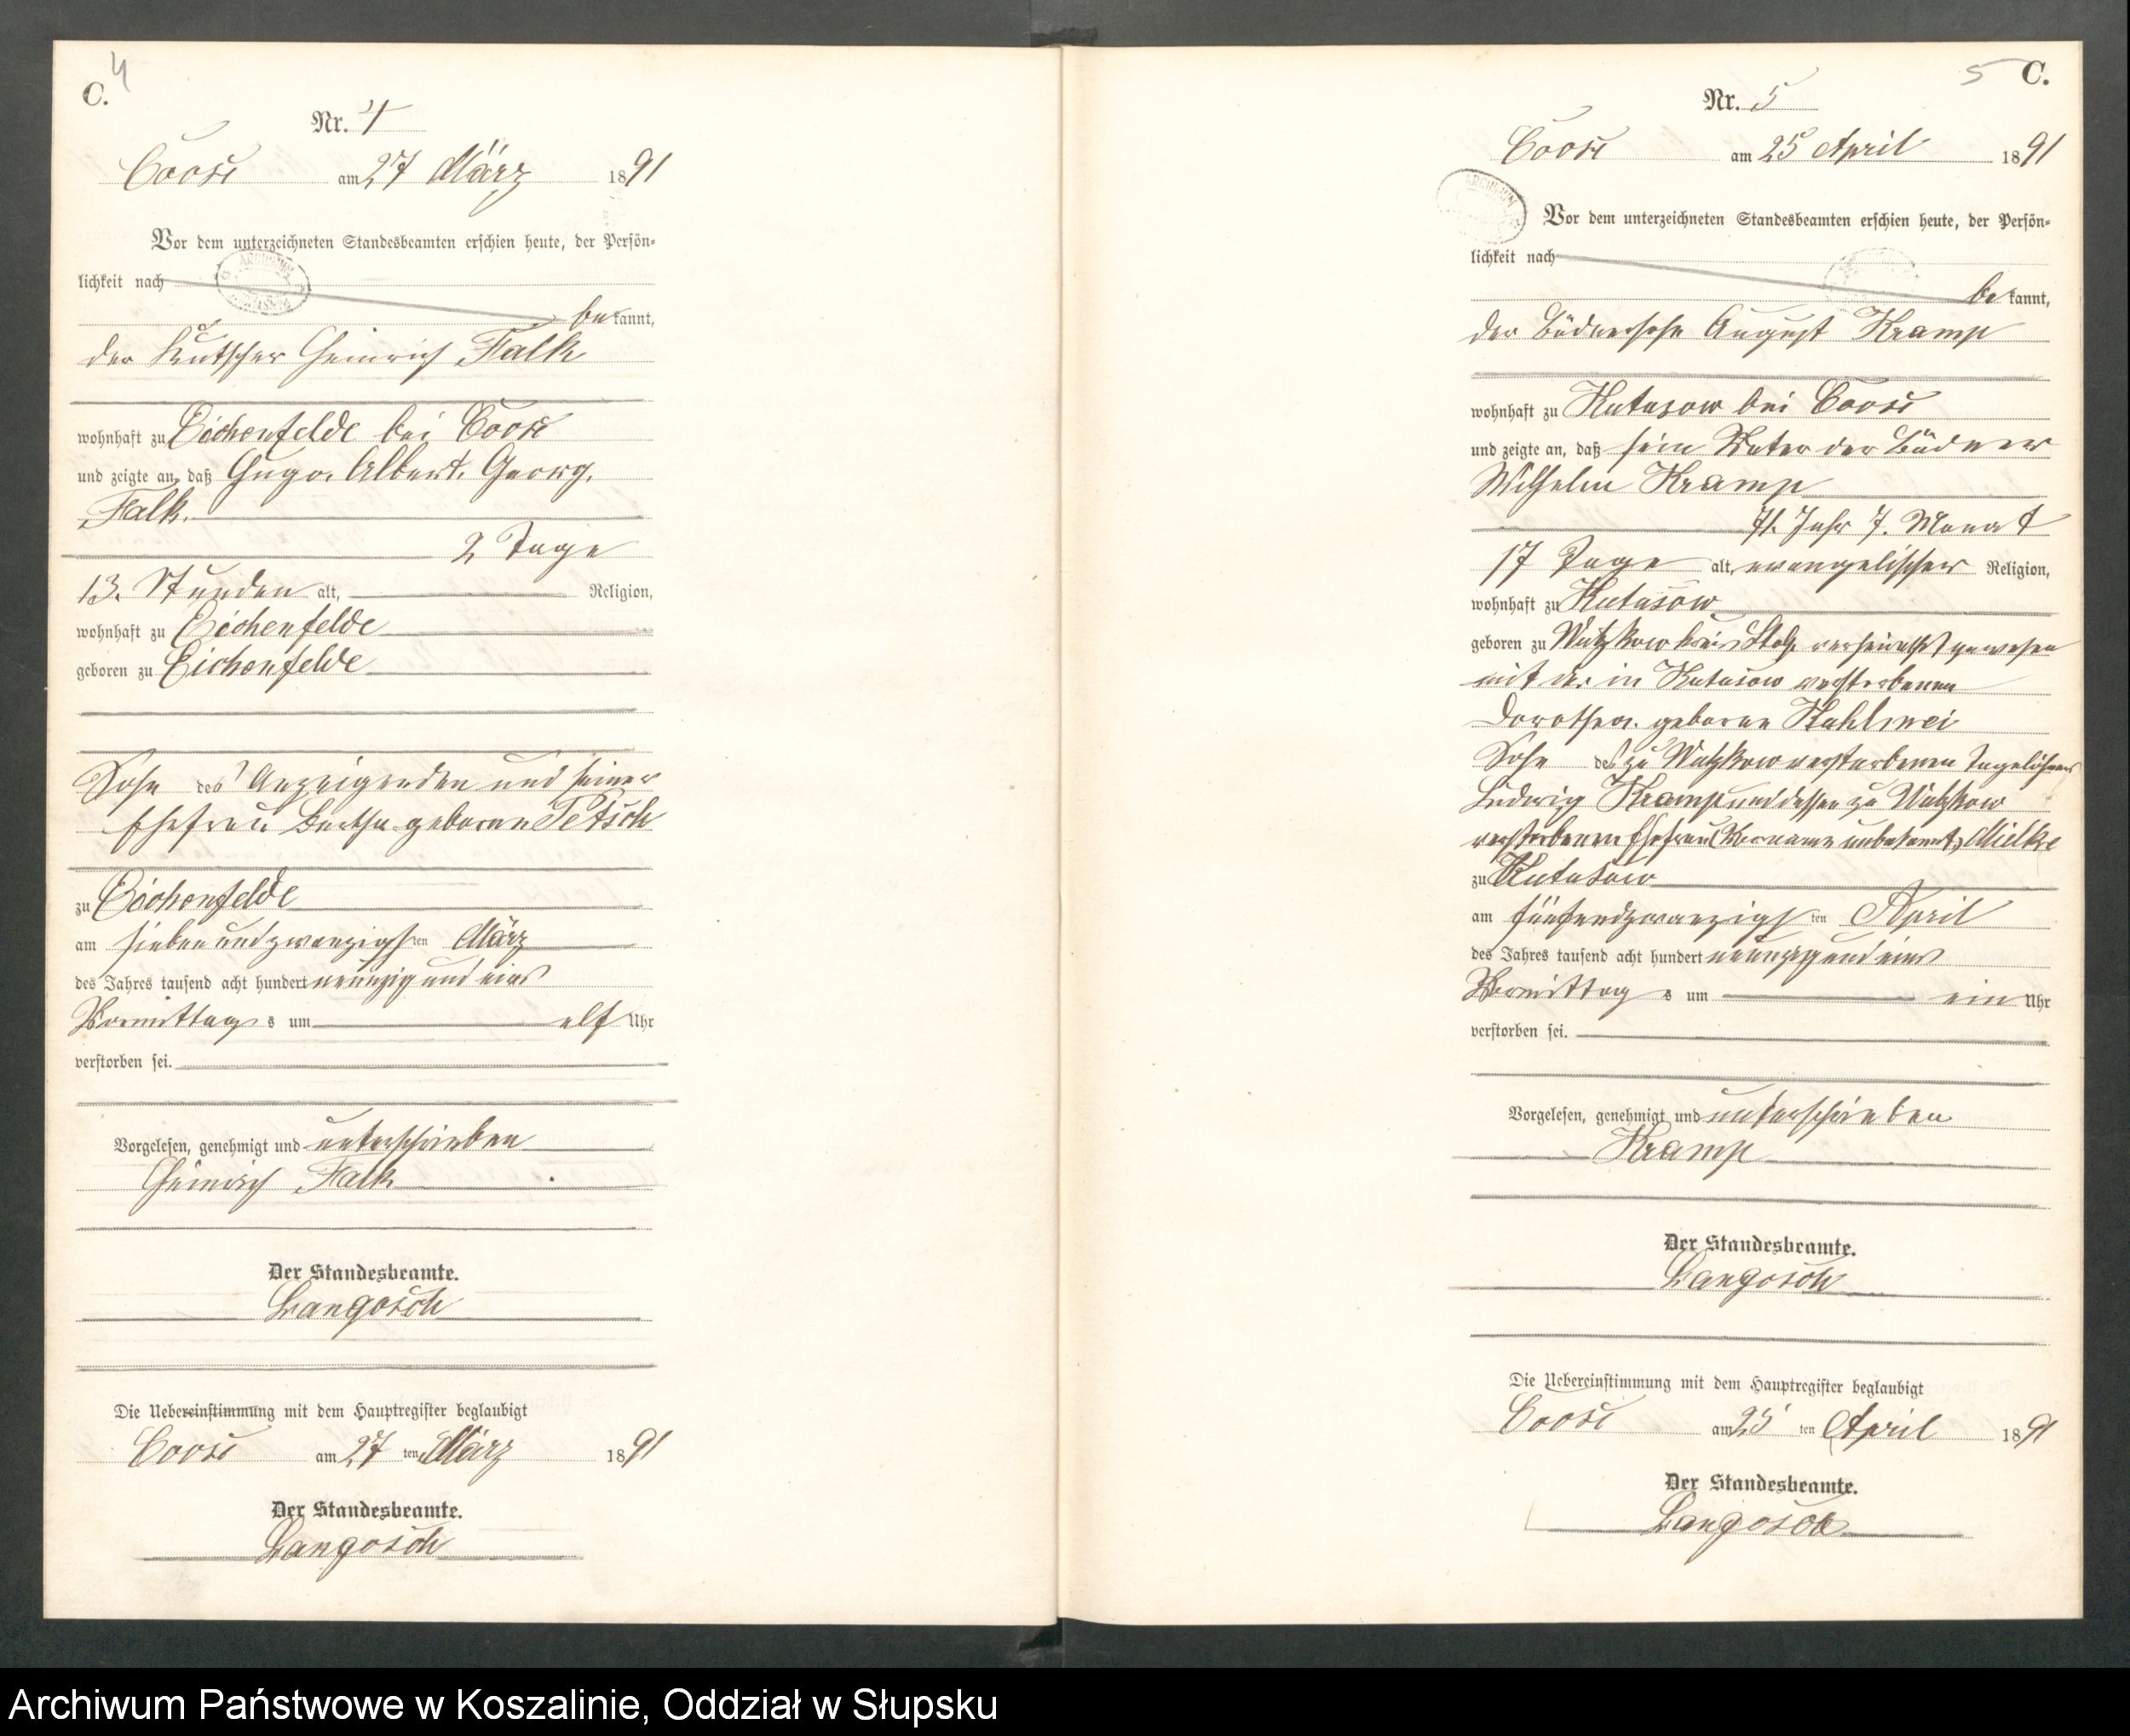 C. 4
Nr. 4
Coose am 27 März 1891
Vor dem unterzeichneten Standesbeamten erschien heute, der Persön-
lichkeit nach
bekannt,
der Kutscher Heinrich Falk
wohnhaft zu Eichenfelde bei Coose
und zeigte an, daß Hugo, Albert, Georg,
Falk.
2 Tage
13. Stunden alt, Religion,
wohnhaft zu Eichenfelde
geboren zu Eichenfelde
Sohn des Anzeigenden und seiner
Ehefrau Bertha geborene Petsch
zu Eichenfelde
am siebenundzwanzigsten März
des Jahres tausend acht hundert neunzig und eins
Vormittags um elf Uhr
verstorben sei.
Vorgelesen, genehmigt und unterschrieben
Heinrich Falk
Der Standesbeamte.
Langosch
Die Uebereinstimmung mit dem Hauptregister beglaubigt
Coose am 27 ten März 1891
Der Standesbeamte.
Langosch
5 C.
Nr. 5
Coose am 25 April 1891
Vor dem unterzeichneten Standesbeamten erschien heute, der Persön-
lichkeit nach
bekannt,
der Büdnersohn August Kramp
wohnhaft zu Kutusow bei Coose
und zeigte an, daß sein Vater der Büdner
Wilhelm Kramp
71. Jahr 7. Monat
17 Tage alt, evangelischer Religion,
wohnhaft zu Kutusow
geboren zu Wutzkow Kreis Stolp verheirathet gewesen
mit der in Kutusow verstorbenen
Dorothea. geborene
Sohn des zu Wutzkow verstorbenen Tagelöhners
Ludwig Kramp und dessen zu Wutzkow
verstorbenen Ehefrau (Vorname unbekannt) Mielke
zu Kutusow
am fünfundzwanzigsten April
des Jahres tausend acht hundert neunzig und eins
Vormittags um ein Uhr
verstorben sei.
Vorgelesen, genehmigt und unterschrieben
Kramp
Der Standesbeamte.
Langosch
Die Uebereinstimmung mit dem Hauptregister beglaubigt
Coose am 25 ten April 1891
Der Standesbeamte.
Langosch
Archiwum Państwowe w Koszalinie, Oddział w Słupsku